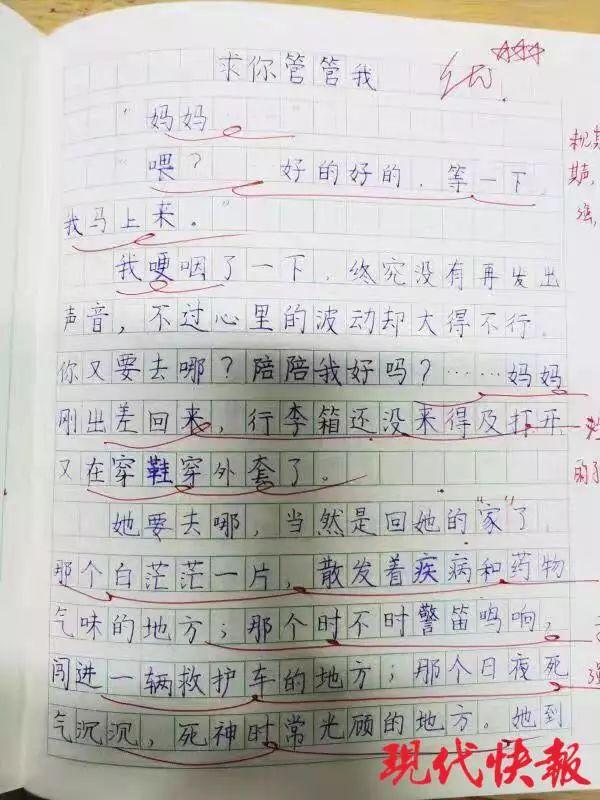 求你管管我
优
"妈妈……"
"喂？……好的好的，等一下，
我马上来。"
我哽咽了一下，终究没有再发出
声音，不过心里的波动却大得不行。
你又要去哪？陪陪我好吗？……妈妈
刚出差回来，行李箱还没来得及打开
又在穿鞋穿外套了。
她要去哪，当然是回她的"家"了，
那个白茫茫一片，散发着疾病和药物
气味的地方；那个时不时警笛鸣响，
闯进一辆救护车的地方；那个日夜死
气沉沉，死神时常光顾的地方。她到
现代快报